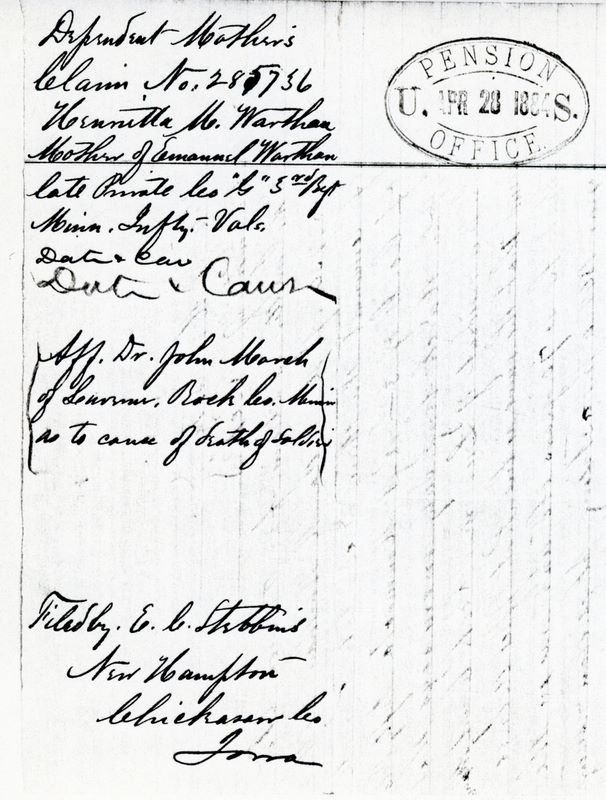 Dependent Mother's
Claim No. 285736
Henrietta M. Warthan
Mother of Emanuel Warthan
late Private Co "G" 3rd Regt
Minn. Infty. Vols.
Date & Cau
Date & Cause
Aff. Dr. John March
of Louverne, Rock Co. Minn
as to cause of death of Soldier
Filed by. E. C. Stebbins
New Hampton
Chickasaw Co
Iowa
PENSION
U. APR 28 1884 S.
OFFICE.